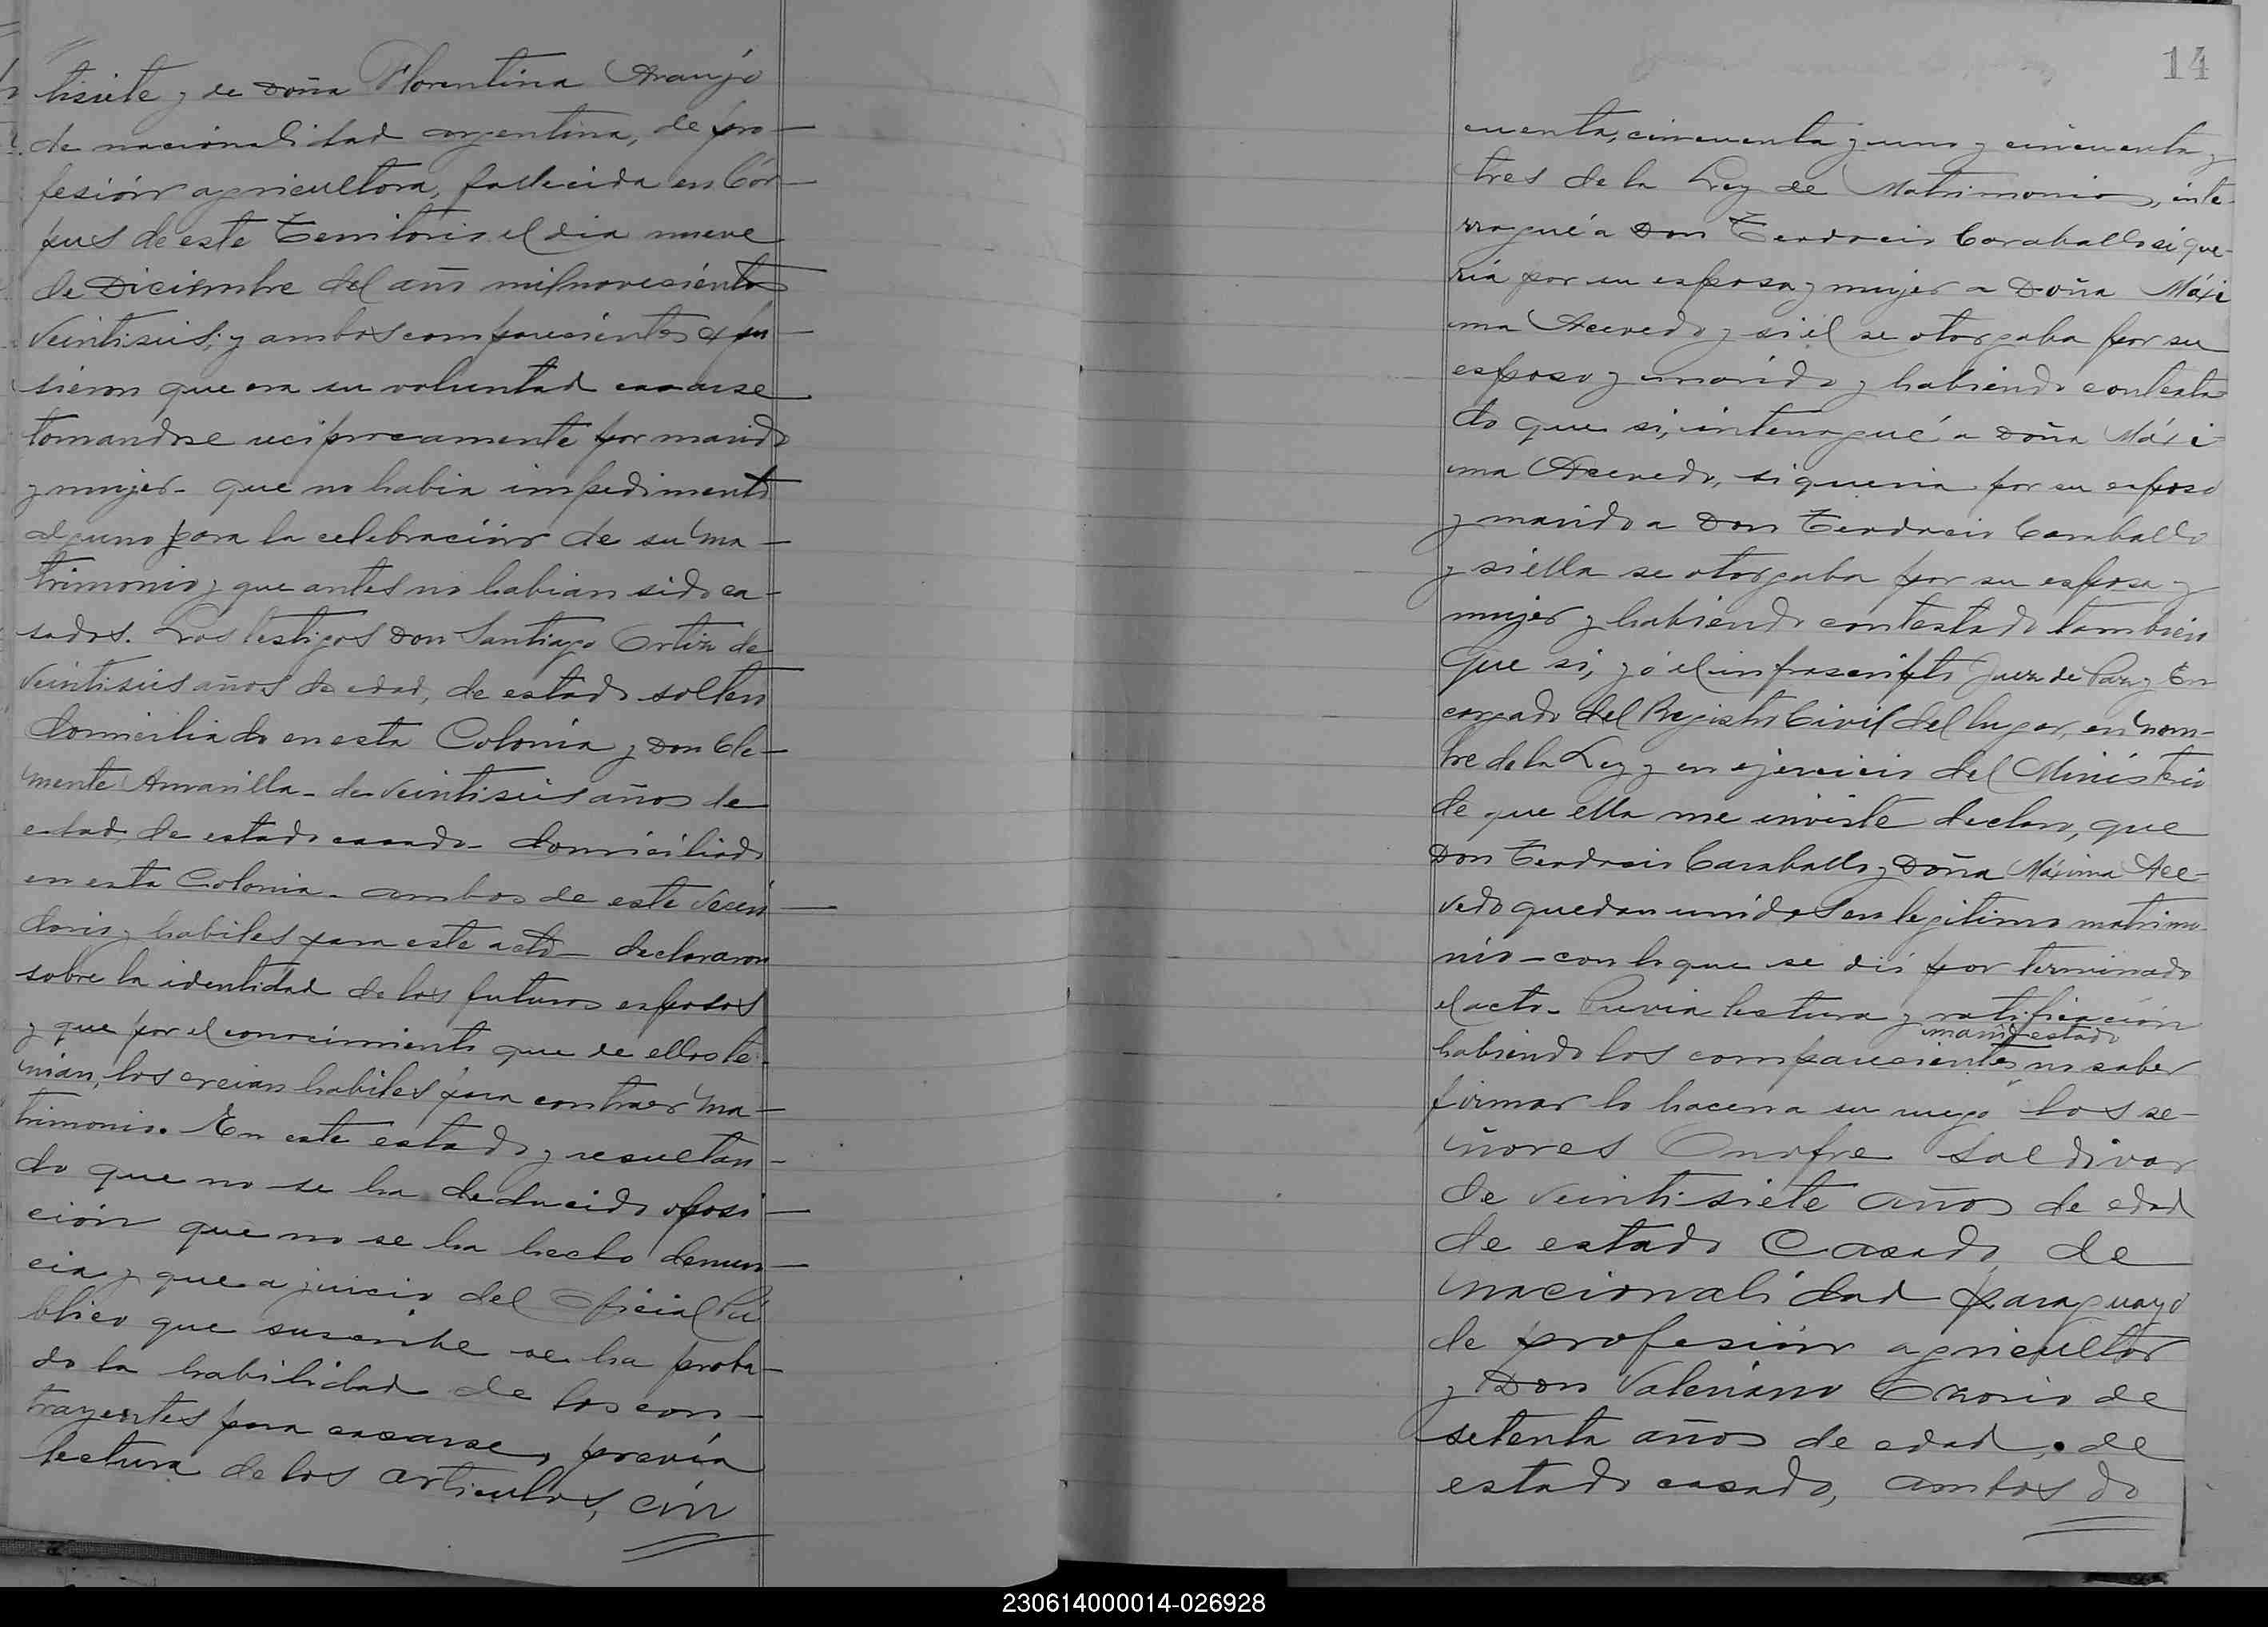 tisiete y de Doña Florentina Araujo
de nacionalidad argentina, de pro-
fesión agricultora, fallecida en Cór-
pus de este Territorio el dia nueve
de Diciembre del año mil novecientos
veintiseis; y ambos comparecientes expu-
sieron que era su voluntad casarse
tomandose reciprocamente por marido
y mujer - que no habia impedimento
alguno para la celebración de su ma-
trimonio y que antes no habian sido ca-
sados. Los testigos Don Santiago Ortiz de
veintiseis años de edad, de estado soltero
domiciliado en esta Colonia y Don Cle-
mente Amarilla - de veintiseis años de
edad, de estado casado - domiciliado
en esta Colonia - ambos de este vecin
dario y habiles para este acto - declararon
sobre la identidad de los futuros esposos
y que por el conocimiento que de ellos te-
nian, los creian habiles para contraer ma-
trimonio. En este estado y resultan-
do que no se ha deducido oposi-
ción que no se ha hecho denun-
cia y que a juicio del Oficial Pú
blico que suscribe se ha proba-
do la habilidad de los con-
trayentes para casarse, previa
lectura de los articulos, cin
14
cuenta, cincuenta y uno y cincuenta y
tres de la Ley de Matrimonio, inte-
rrogué a Don Teodocio Caraballo si que-
ria por su esposa y mujer a Doña Máxi
ma Acevedo y si él se otorgaba por su
esposo y marido y habiendo contesta-
do que si, interrogué a Doña Máxi-
ma Acevedo, si queria por su esposo
y marido a Don Teodocio Caraballo
y si ella se otorgaba por su esposa y
mujer y habiendo contestado tambien
que si, yo el infrascripto Juez de Paz y En
cargado del Registro Civil del lugar, en nom-
bre de la Ley y en ejercicio del Ministerio
de que ella me inviste declaro, que
Don Teodocio Caraballo y Doña Máxima Ace-
vedo quedan unidos en legitimo matrimo-
nio - con lo que se dió por terminado
el acto - Previa lectura y ratificación
manifestado
habiendo los comparecientes no saber
firmar lo hacen a su ruego los se-
ñores Onofre Saldivar
de veintisiete años de edad
de estado Casado, de
nacionalidad paraguayo
de profesión agricultor
y Don Valeriano de
setenta años de edad, de
estado casado, ambos do
230614000014-026928